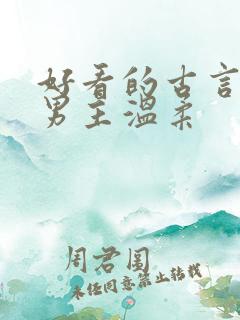 好看的古言
男主温柔
周君围
未经同意禁止转载